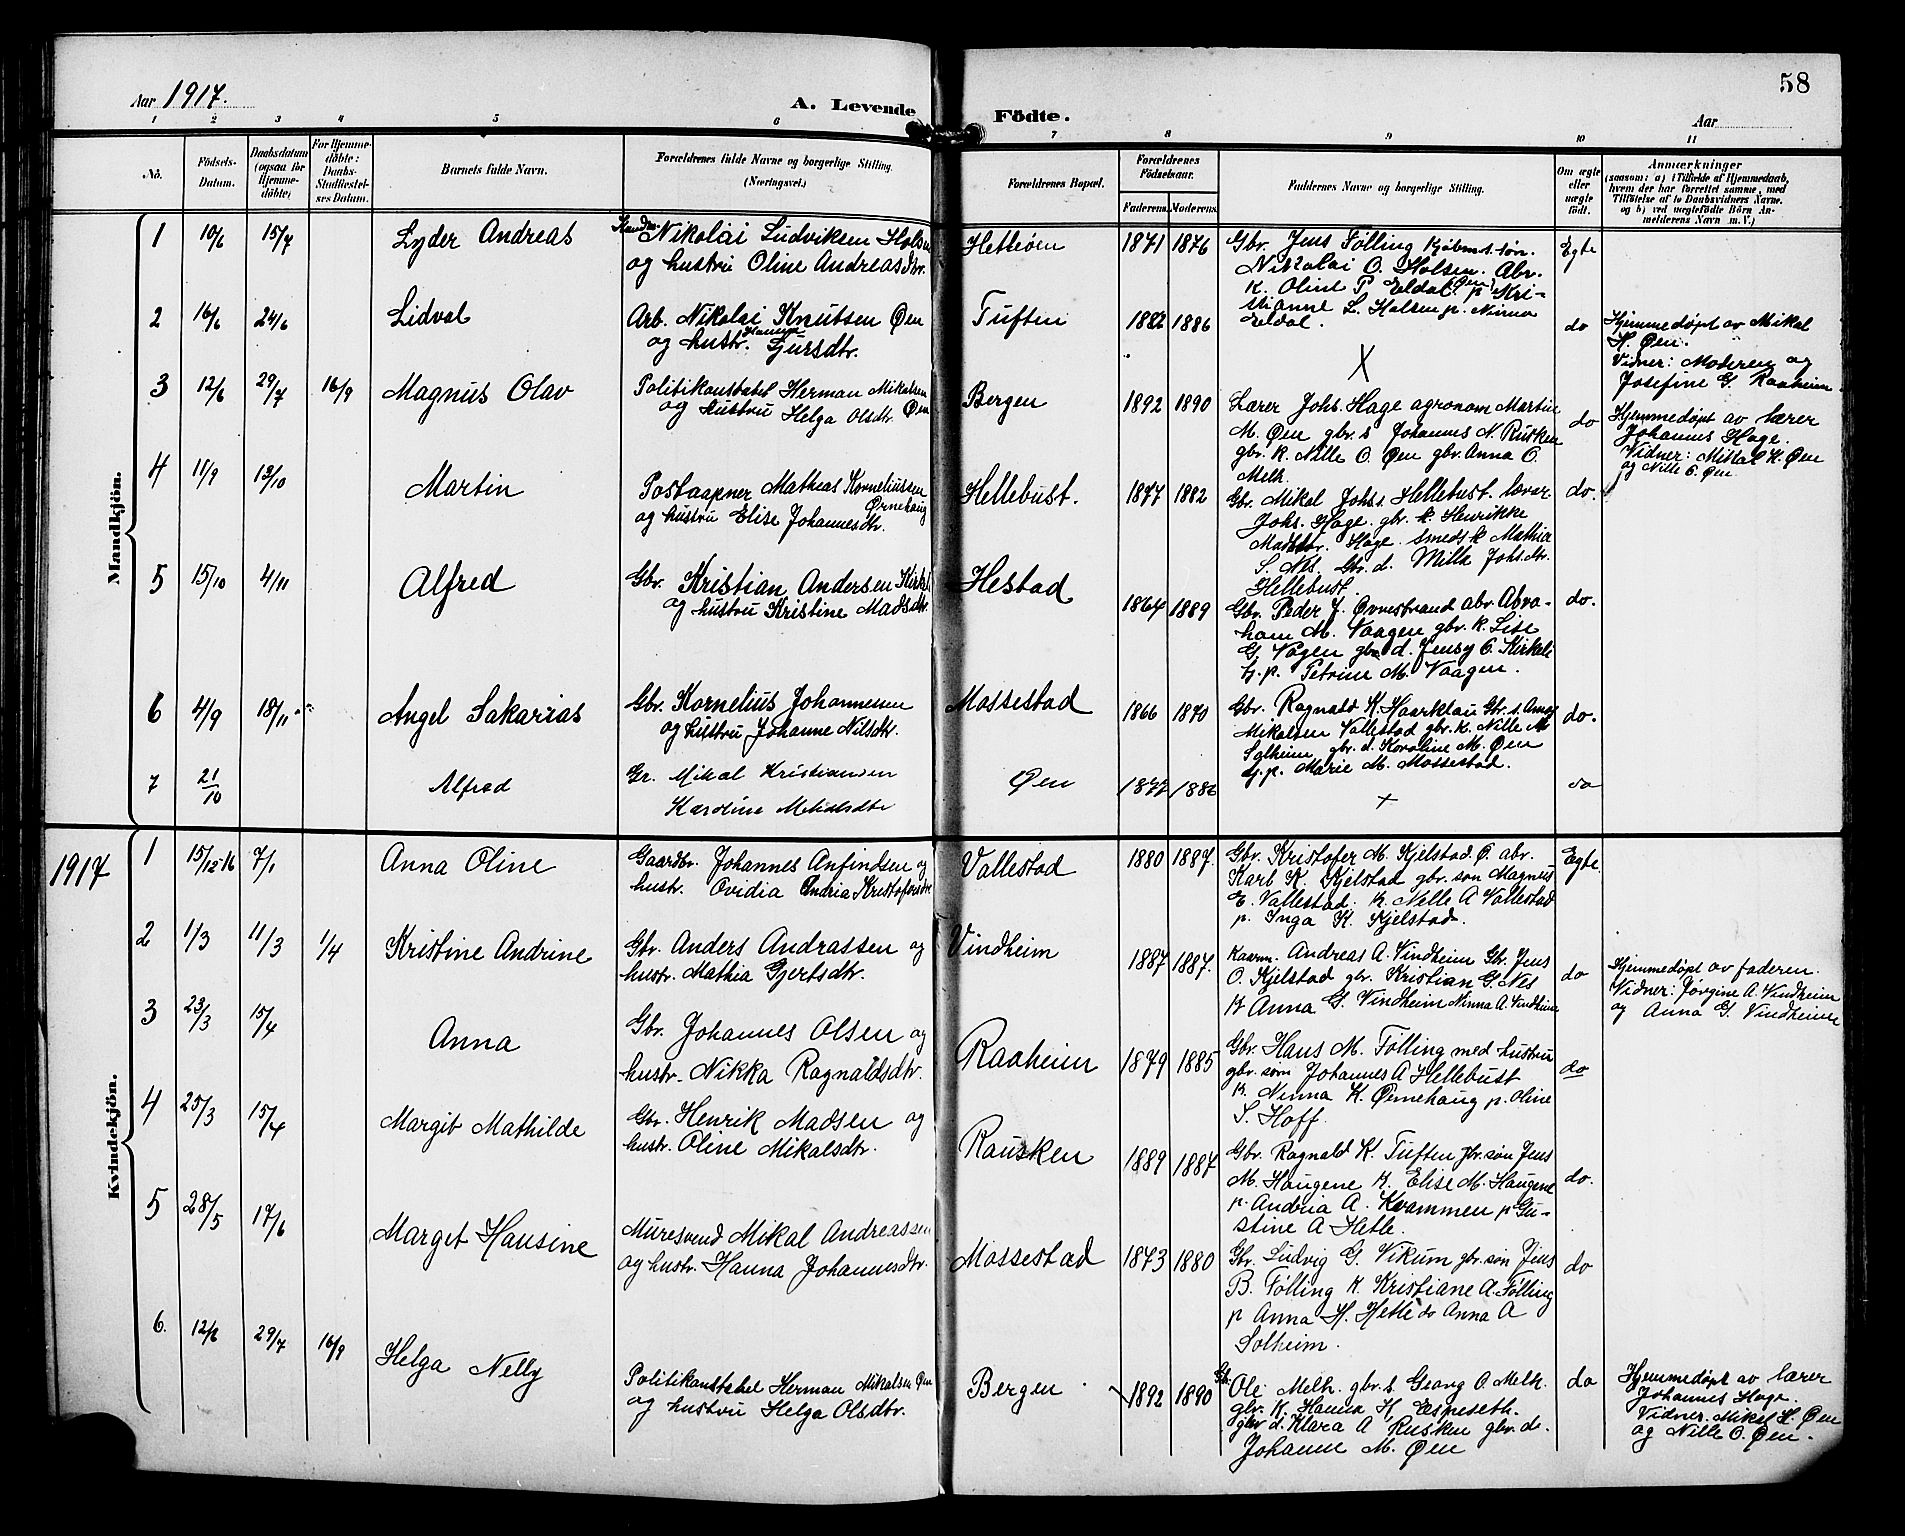 58
Aar 1917.
A. Levende Födte.
Aar
1 2 3 4 5 6 7 8 9 10 11
No.
Födsels-Datum.
Daabsdatum (ogsaa for Hjemme-döbte)
For Hjemme-döbte: Daabs-Stadfæstel-ses Datum.
Barnets fulde Navn.
Forældrenes fulde Navne og borgerlige Stilling. (Næringsvei.)
Forældrenes Bopæl.
Forældrenes Födselsaar.
Faderens. Moderens.
Faddernes Navne og borgerlige Stilling.
Om ægte eller uægte födt.
Anmærkninger
(saasom: a) i Tilfælde af Hjemmedaab,
hvem der har forrettet samme, med
Tilföielse af to Daabsvidners Navne.
og b) ved uægtefödte Börn An-
melderens Navn m. V.)
Mandkjön.
1 10/6 15/7 Lyder Andreas
Nikolai Ludviksen Holsen
og hustru Oline Andreasdtr.
Hetleöen 1871 1876
Gbr. Jens Fölling Kjöbm. s. søn.
Nikolai O. Holsen. Abr.
K. Oline P Eldal. p Kri-
stianne L. Holsen p. Ninna
Eldal.
Egte
2 16/6 24/6 Lidval
Arb. Nikolai Knutsen Øen
og hustr. Hanna Sjursdtr.
Tuften 1882 1886
X
do
Hjemmedøpt av Mikal
H. Øen.
Vidner: Moderen og
Josefine G. Raaheim
3 12/6 29/7 16/9 Magnus Olav
Politikonstabel Herman Mikalsen Øen
og hustru Helga Olsdtr.
Bergen 1892 1890
Lærer Johs. Hage agronom Martin
M. Øen gbr. s Johannes N. Rusken
gbr. k. Nille O. Øen gbr. Anna O.
Melh.
do
Hjemmedøpt av lærer
Johannes Hage.
Vidner: Mikal H. Øen
og Nille O. Øen
4 11/9 13/10 Martin
Postaapner Mathias Korneliussen Ørnehaug
og hustru Elise Johannesdtr.
Hellebust. 1877 1882
Gbr. Mikal Johs. Hellebust. lærar
Johs. Hage. gbr. k. Henrikke
Madsdtr. Hage. smeds k Mathia
S. Nes. Gbr. d. Milla Johsdtr.
Hellebust.
do.
5 15/10 4/11 Alfred
Gbr. Kristian Andersen
og hustru Kristine Madsdtr.
Hestad 1864 1889
Gbr. Peder J. Øvrestrand abr. Abra-
ham M. Vaagen gbr. k. Lise
G. Vagen gbr d. Jensy O. Kirkeli
p. Petrine M. Vaagen.
do.
6 4/9 18/11 Angel Sakarias
Gbr. Kornelius Johannesen
og hustru Johanne Nilsdtr.
Massestad 1866 1870
Gbr. Ragnald K. Haarklau Gbr. s.
Mikalsen Vallestad gbr. k. Nille M
Solheim gbr. d. Karoline M. Øen
p. Marie M. Massestad.
do.
7 21/10 Alfred
Gr. Mikal Kristiansen
Karoline
Øen 1877 1886
+
do
1917
Kvindekjön.
1 15/12-16 7/1 Anna Oline
Gaardbr. Johannes Anfindsen og
hustr. Ovidia Andria Kristofersdtr
Vallestad 1880 1887.
Gbr. Kristofer M. Kjelstad. O. abr.
Karb K. Kjelstad gbr. søn Magnus
E. Vallestad. k. Nelle A Vallestad
p. Inga K. Kjelstad.
Egte.
2 1/3 11/3 1/4 Kristine Andrine
Gbr. Anders Andrassen og
hustr. Mathia Gjertsdtr.
Vindheim 1887 1887.
Kaarm. Andreas A. Vindheim Gbr. Jens
O. Kjelstad gbr. Kristian G. Nes
K Anna G. Vindheim Ninna A. Vindheim
do
Hjemmedøpt av faderen.
Vidner: Jørgine A. Vindheim
og Anna G. Vindheim
3 23/3 15/4 Anna
Gbr. Johannes Olsen og
hustr. Nikka Ragnaldsdtr.
Raaheim 1879 1885
Gbr. Hans M. Fölling med hustru
gbr. søn Johannes A Hellebust
k. Ninna K. Ørnehaug p. Oline
S. Hoff.
do
4 25/3 15/4 Margit Mathilde
Gbr. Henrik Madsen og
hustr. Oline Mikalsdtr.
Rausken 1889 1887
Gbr. Ragnald K. Tuften gbr. søn Jens
M. Haugene K. Elise M. Haugene
p. Andria A. Kvammen p Gu-
stine A Hetle.
do.
5 28/5 17/6 Marget Hansine
Muresvend Mikal Andreassen
og hustr. Hanna Johannesdtr.
Massestad 1873 1880
Gbr. Ludvig G. Vikum gbr. søn Jens
B. Fölling K. Kristiane A. Fölling
p Anna H. Hetle do Anna A
Solheim.
do
6. 12/6 29/7 16/9 Helga Nelly
Politikonstabel Herman Mikalsen Øen
og hustru Helga Olsdtr.
Bergen 1892 1890
Gb. Ole Melh. gbr. s. Georg O. Melh.
gbr. K. Hanna H. Espeseth.
gbr d. Klara A Rusken gbr. d.
Johanne M. Øen
do
Hjemmedøpt av lærer
Johannes Hage.
Vidner. Mikal H. Øen
og Nille O. Øen.